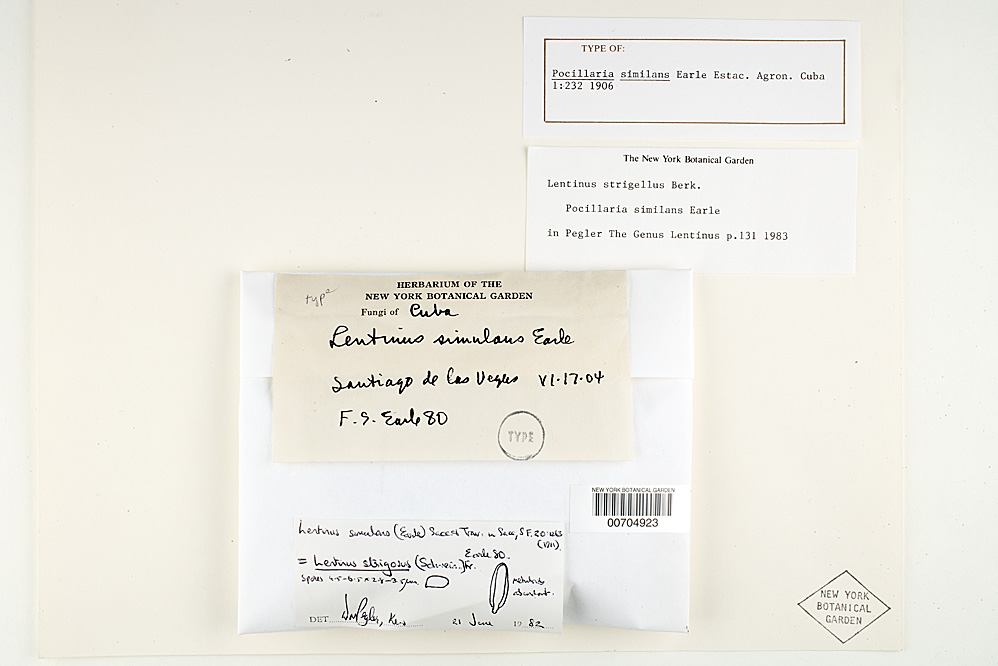 TYPE OF:
Pocillaria similans Earle Estac. Agron. Cuba
1:232 1906
The New York Botanical Garden
Lentinus strigellus Berk.
Pocillaria similans Earle
in Pegler The Genus Lentinus p.131 1983
type
HERBARIUM OF THE
NEW YORK BOTANICAL GARDEN
Fungi of Cuba
Lentinus simulans Earle
Santiago de las Vegas VI·17·04
F. S. Earle 80
TYPE
NEW YORK BOTANICAL GARDEN
00704923
Lentinus simulans (Earle) Sacc. &
Earle 80.
= Lentinus strigosus (Schwein.) Fr.
Spores
DET. Pegler, Kew
21 June 1982
NEW YORK
BOTANICAL
GARDEN